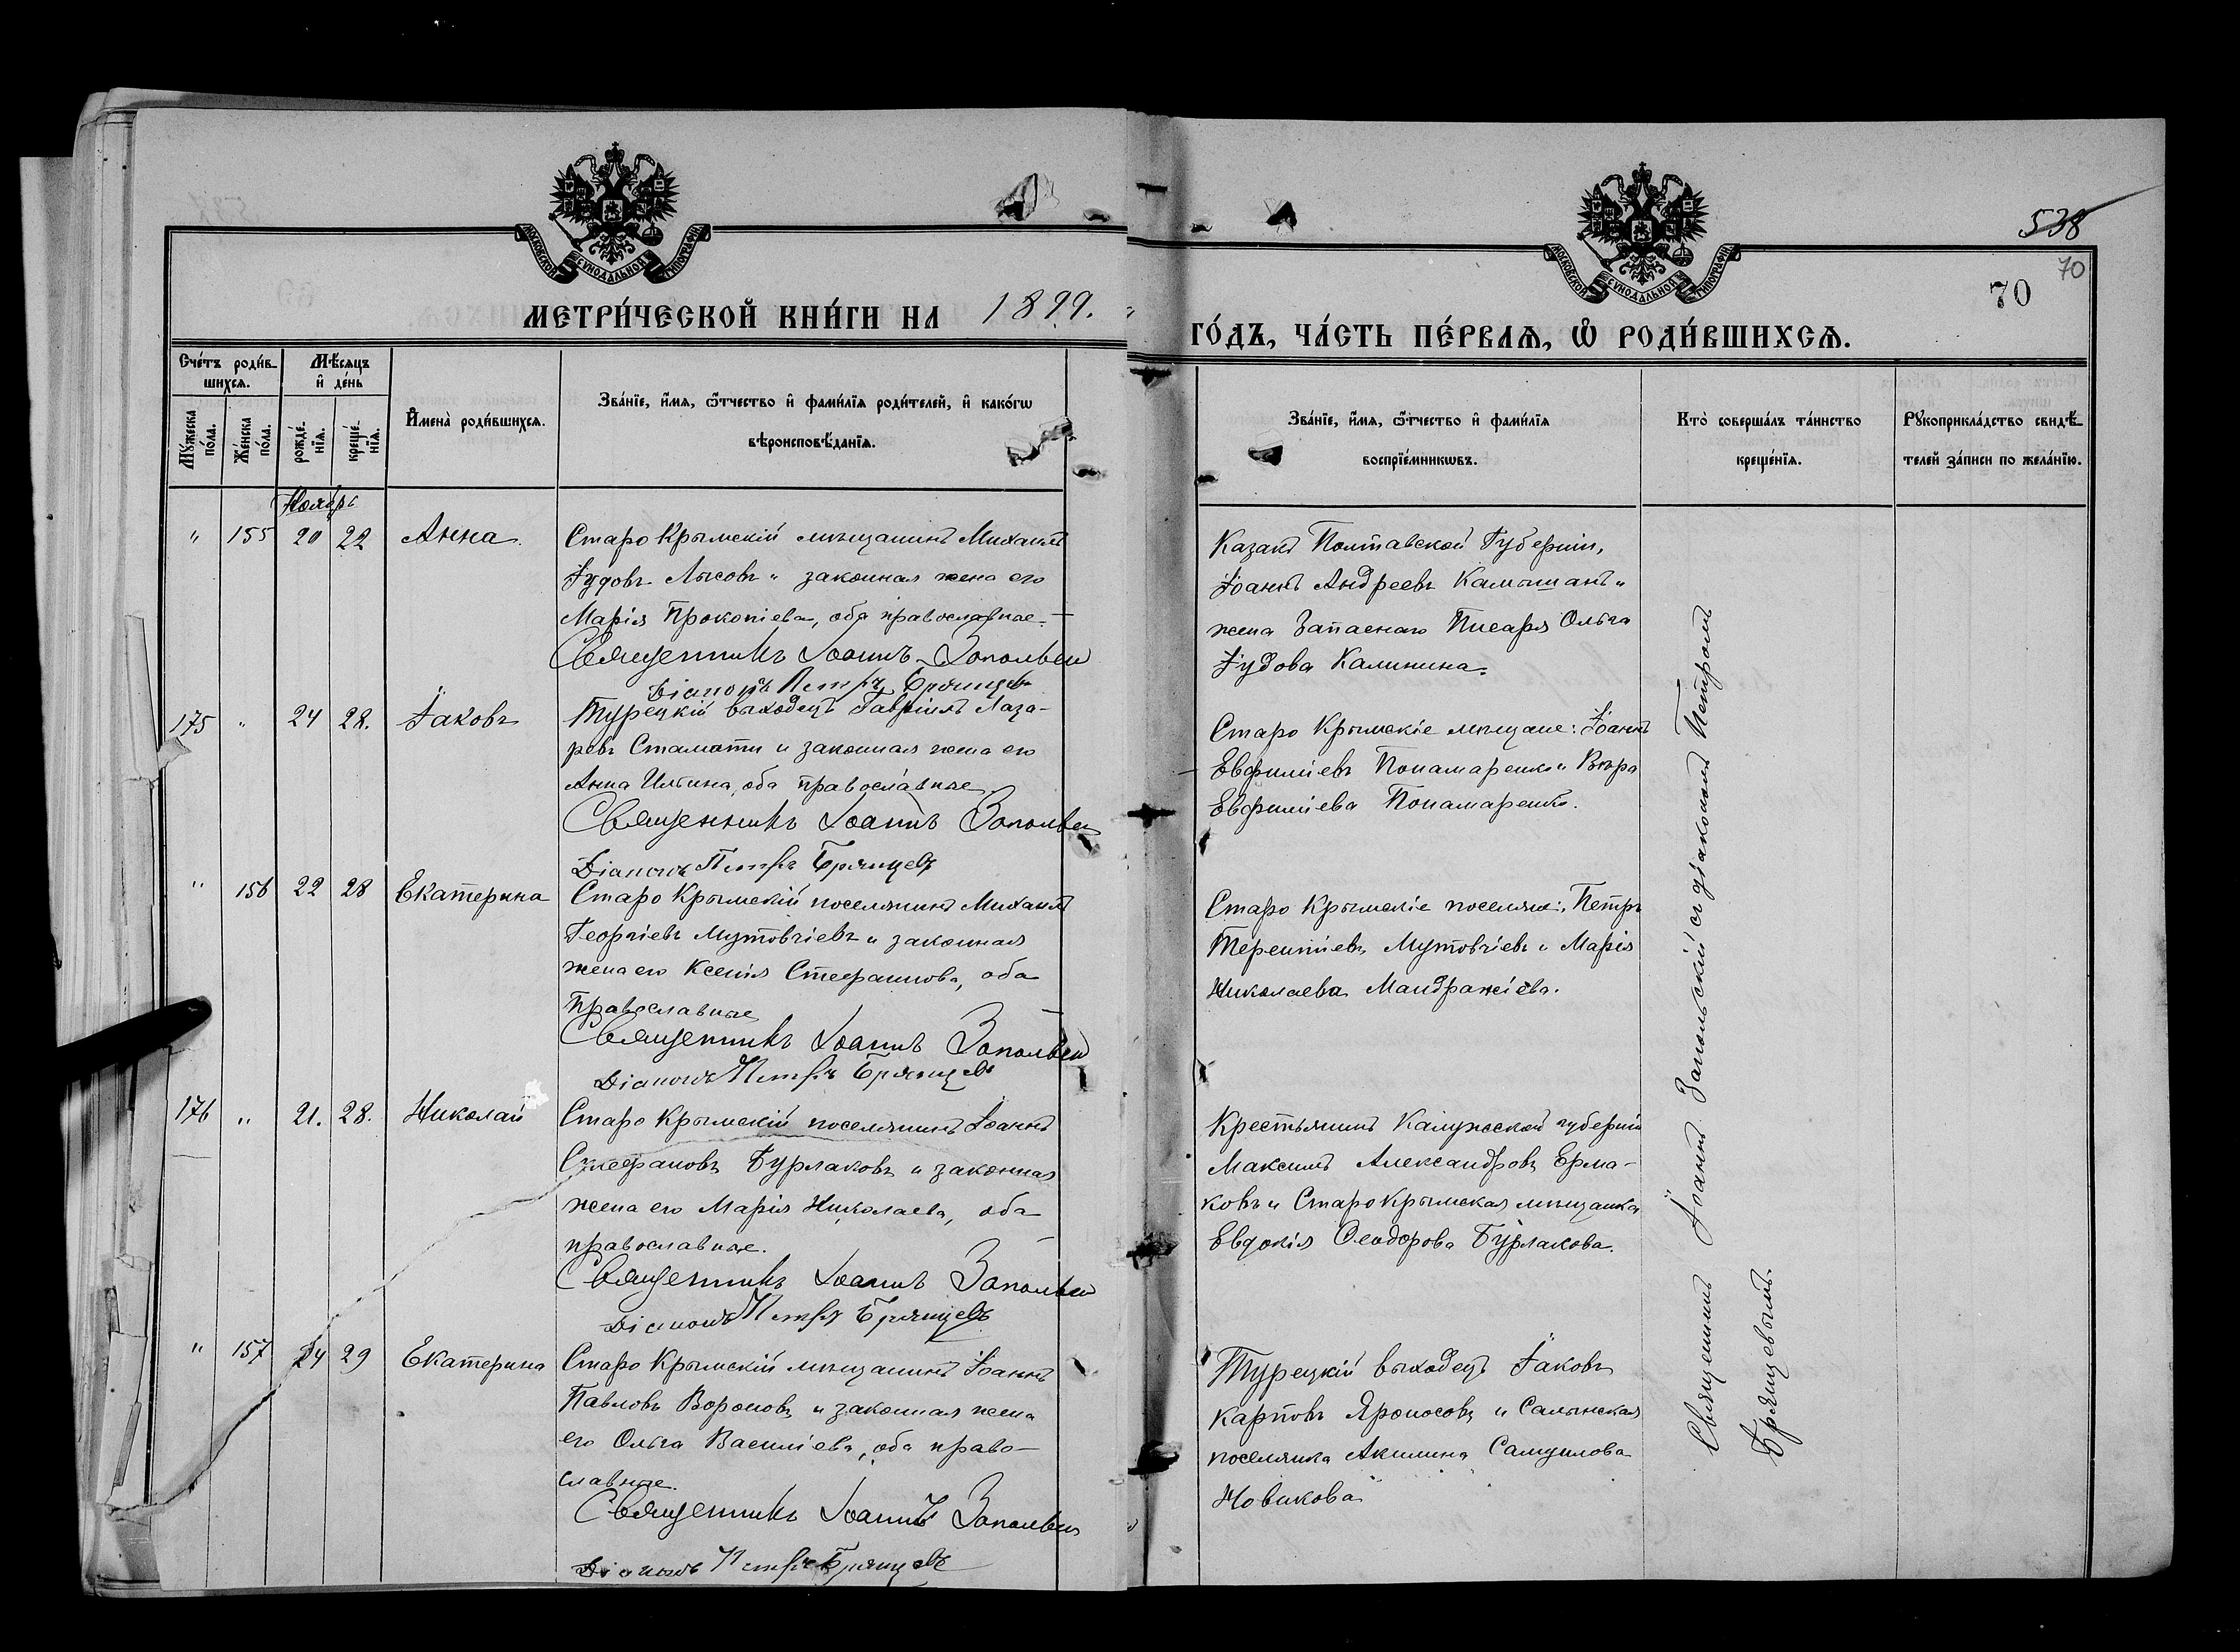 538
70
70
МОСКОВСКОЙ СѴНОДАЛЬНОЙ ТИПОГРАФІИ
МОСКОВСКОЙ СѴНОДАЛЬНОЙ ТИПОГРАФІИ
МЕТРИ́ЧЕСКОЙ КНИ́ГИ НА 1899.
ГО́ДЪ, ЧА́СТЬ ПЕ́РВАѦ, Ѡ҆ РОДИ́ВШИХСѦ.
Сче́тъ роди́в-
шихсѧ.
Мꙋ́жеска
по́ла.
Же́нска
по́ла.
Мѣ́сѧцъ
и҆ де́нь
рожде́-
нїѧ.
креще́-
нїѧ.
И҆мена̀ роди́вшихсѧ.
Зва́нїе, и҆́мѧ, ѻ҆́тчество и҆ фами́лїѧ роди́телей, и҆ како́гѡ
вѣроисповѣ́данїѧ.
Зва́нїе, и҆́мѧ, ѻ҆́тчество и҆ фами́лїѧ
воспрїе́мникѡвъ.
Кто̀ соверша́лъ та́инство
креще́нїѧ.
Рꙋкоприкла́дство свидѣ́-
телей за́писи по жела́нїю.
Ноябрь
" 155 20 22 Анна.
Старо Крымскій мѣщанинъ Михаилъ
Іудовъ Лысовъ и законная жена его
Марія Прокопіева, оба православные.
Священникъ Іоаннъ Запольскій
Діаконъ Петръ Брянцевъ
Казакъ Полтавской Губерніи,
Іоаннъ Андреевъ Камышанъ и
жена Запаснаго Писаря Ольга
Іудова Калинина.
175 " 24 28. Іаковъ
Турецкій выходецъ Гавріилъ Лаза-
ревъ Стамати и законная жена его
Анна Ильина, оба православные.
Священникъ Іоаннъ Запольскій
Діаконъ Петръ Брянцевъ
Старо Крымскіе мѣщане: Іоаннъ
Евфиміевъ Понамаренко и Вѣра
Евфиміева Понамаренко.
" 156 22 28 Екатерина
Старо Крымскій поселянинъ Михаилъ
Георгіевъ Мутовчіевъ и законная
жена его Ксенія Стефанова, оба
православные
Священникъ Іоаннъ Запольскій
Діаконъ Петръ Брянцевъ
Старо Крымскіе поселяне: Петръ
Терентіевъ Мутовчіевъ и Марія
Николаева Мандражіева.
176 " 21. 28. Николай
Старо Крымскій поселянинъ Іоаннъ
Стефановъ Бурлаковъ и законная
жена его Марія Николаева, оба
православные.
Священникъ Іоаннъ Запольскій
Діаконъ Петръ Брянцевъ
Крестьянинъ Калужской губерніи
Максимъ Александровъ Ерма-
ковъ и Старо Крымская мѣщанка
Евдокія Ѳеодорова Бурлакова.
" 157 24 29 Екатерина
Старо Крымскій мѣщанинъ Іоаннъ
Павловъ Вороновъ и законная жена
его Ольга Василіева, оба право-
славные.
Священникъ Іоаннъ Запольскій
Діаконъ Петръ Брянцевъ
Турецкій выходецъ Іаковъ
Карповъ Яроносовъ и Салынская
поселянка Акилина Самуилова
Новикова
Священникъ Іоаннъ Запольскій съ діакономъ Петромъ
Брянцевымъ.